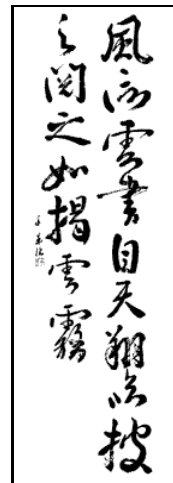 風雲書自天翔吟披
之閱之如揭雲霧